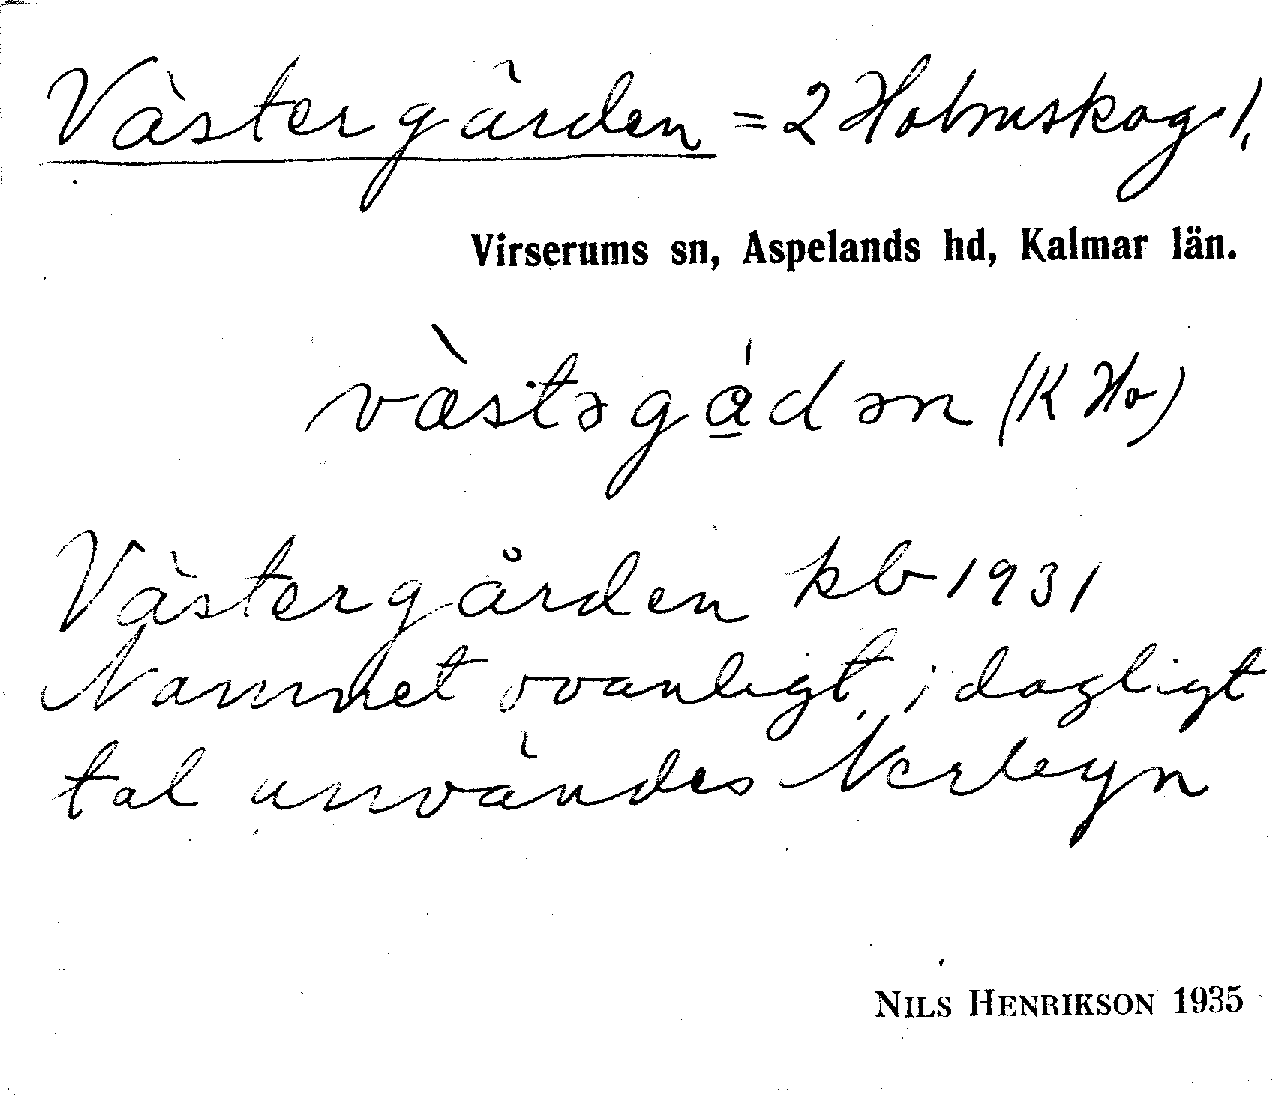 Västergården = 2 Holmskog 1.
Virserums sn, Aspelands hd, Kalmar län.
væ̀stəgá̱dən (K Ho)
Västergården kb 1931
Namnet ovanligt, i dagligt
tal användes Nerbyn
NILS HENRIKSON 1935